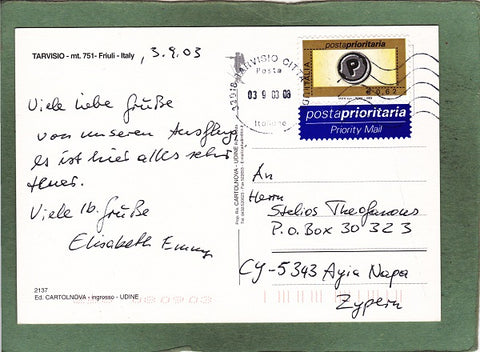 TARVISIO - mt. 751 - Friuli - Italy
3.9.03
Viele liebe Grüße
von unserem Ausflug
es ist hier alles sehr
teuer.
Viele lb. Grüße
Elisabeth
2137
Ed. CARTOLNOVA - ingrosso - UDINE
TARVISIO CITTÀ
Posta
03 9 03 08
Italiane
33018
postaprioritaria
P
€ 0,62
ITALIA
postaprioritaria
Priority Mail
An
Herrn
Stelios Theofanous
P.O. Box 30 323
CY-5343 Ayia Napa
Zypern